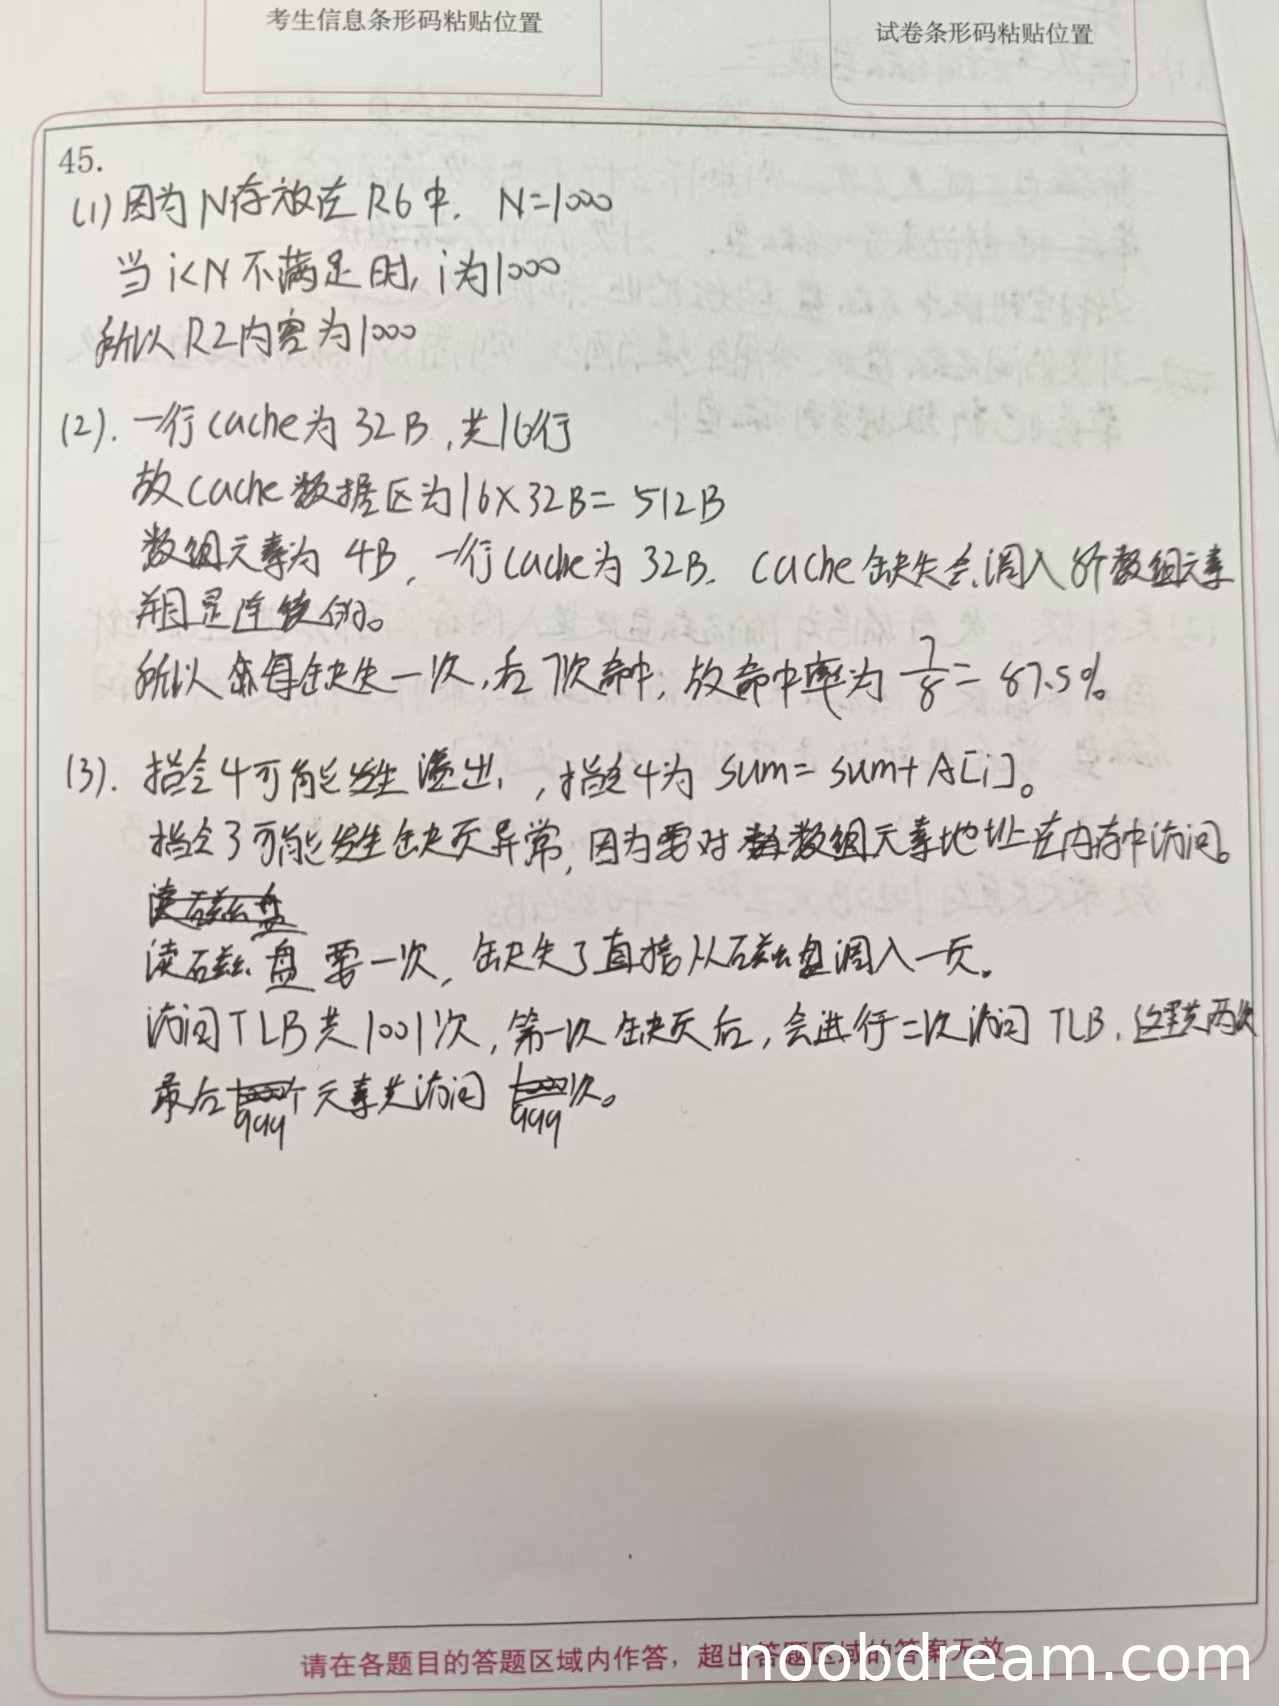 考生信息条形码粘贴位置
试卷条形码粘贴位置
45.
(1) 因为N存放在R6中. N=1000
当i<N不满足时, i为1000
所以R2内容为1000
(2). 一行cache为32B,共16行
故cache数据区为16×32B=512B
数组元素为4B,一行cache为32B. cache缺失会调入8个数组元素
并且是连续的。
所以每缺失一次,后7次命中,故命中率为7/8=87.5%
(3). 指令4可能发生溢出,指令4为sum=sum+A[i]。
指令3可能发生缺页异常,因为要对数组元素地址在内存中访问。
读磁盘
读磁盘要一次,缺失了直接从磁盘调入一页。
访问TLB共1001次,第一次缺页后,会进行二次访问TLB,这里共两次
最后999个元素共访问999次。
请在各题目的答题区域内作答,超出答题区域的答案无效
noobdream.com